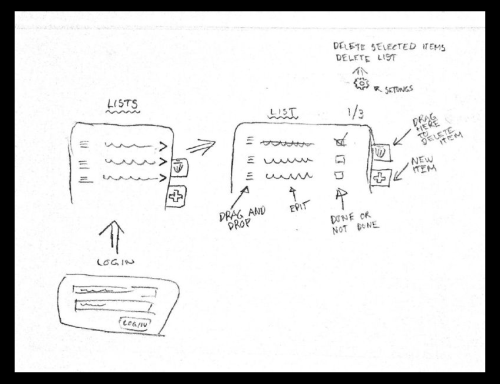 DELETE SELECTED ITEMS
DELETE LIST
SETTINGS
LISTS
LIST
1/3
DRAG
HERE
TO
DELETE
ITEM
NEW
ITEM
DRAG AND
DROP
EDIT
DONE OR
NOT DONE
LOGIN
LOGIN